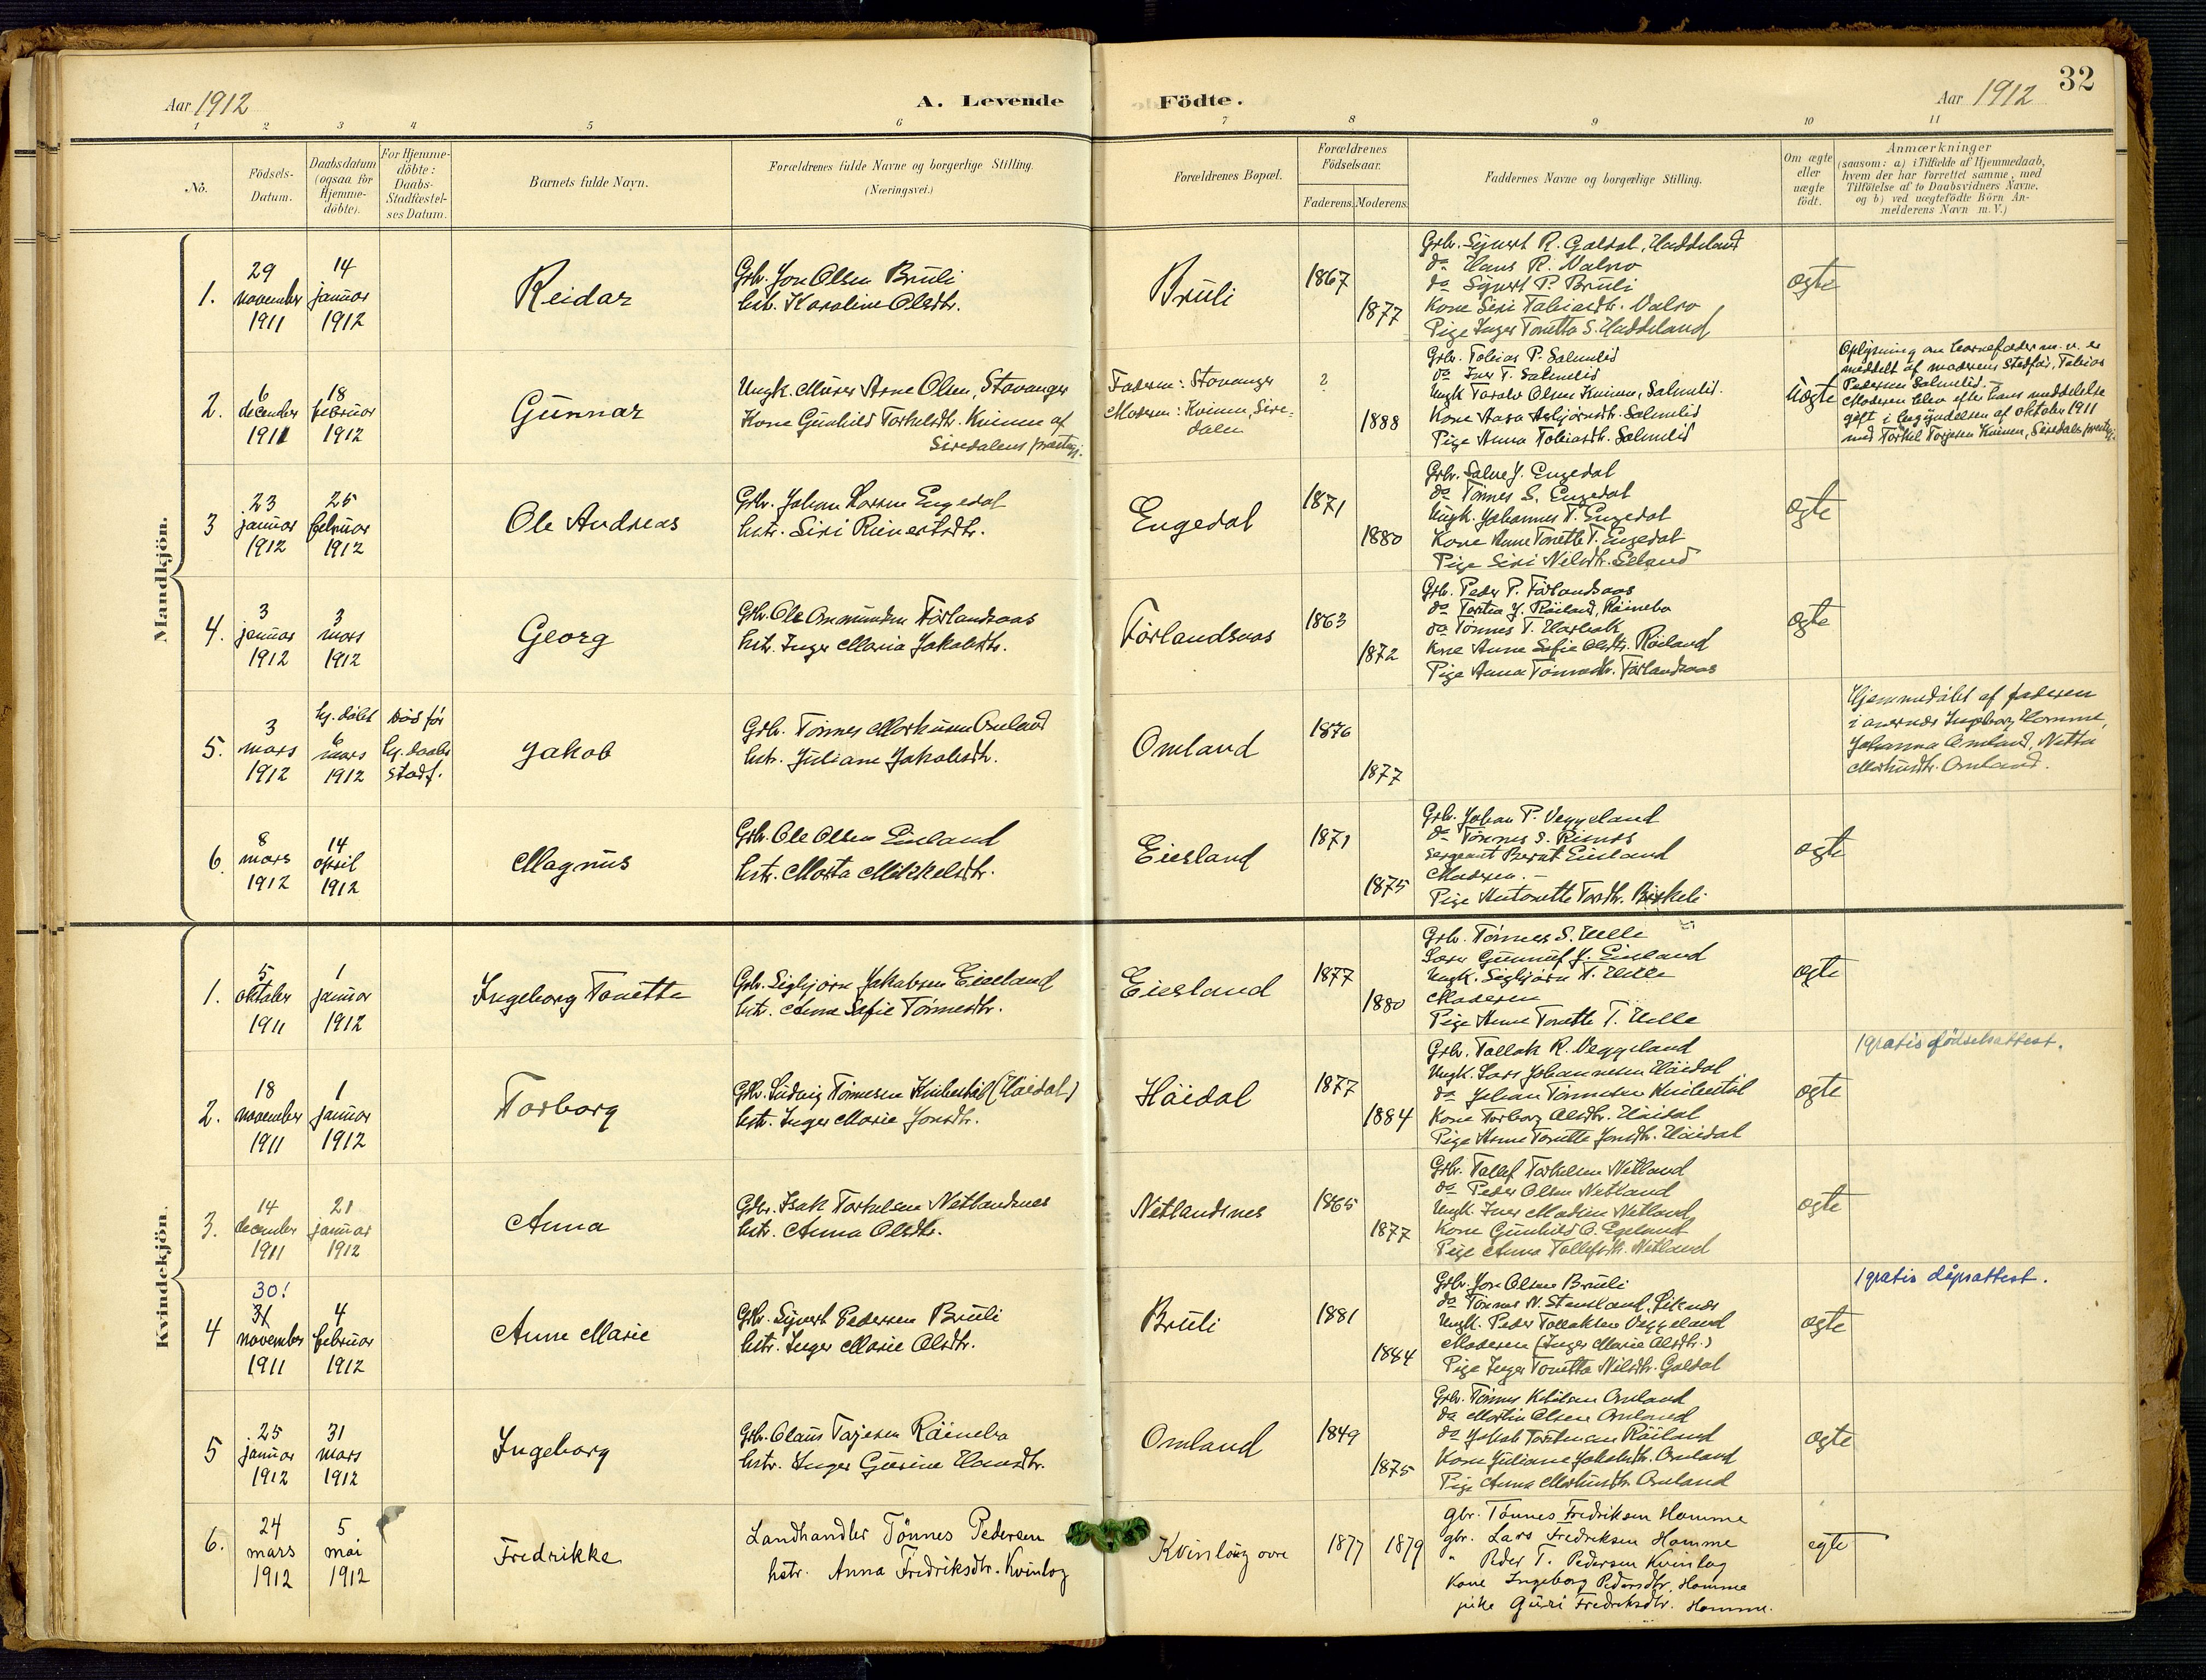 Aar 1912
A. Levende
Födte.
Aar 1912
32
1 2 3 4 5 6 7 8 9 10 11
No.
Födsels-
Datum.
Daabsdatum
(ogsaa for
Hjemme-
döbte).
For Hjemme-
döbte:
Daabs-
Stadfæstel-
ses Datum.
Barnets fulde Navn.
Forældrenes fulde Navne og borgerlige Stilling.
(Næringsvei.)
Forældrenes Bopæl.
Forældrenes
Födselsaar.
Faderens. Moderens.
Faddernes Navne og borgerlige Stilling.
Om ægte
eller
uægte
födt.
Anmærkninger
(saasom: a) i Tilfælde af Hjemmedaab,
hvem der har forrettet samme, med
Tilföielse af to Daabsvidners Navne.
og b) ved uægtefödte Börn An-
melderens Navn m. V.)
Mandkjön.
1.
29
november
1911
14
januar
1912
Reidar
Grbr. Jon Olsen Brüli
hstr. Karoline Olsdtr.
Brüli
1867
1877
Grbr. Sijvert R. Galdal, Haddeland
do Hans R. Valvo
do Sijvert P. Brüli
Kone Siri Tobiasdtr. Valvo
Pige Inger Tonetta S. Haddeland
ægte
2.
6
december
1911
18
februar
1912
Gunnar
Ungk. Murer Arne Olsen, Stavanger
Kone Gunhild Torkelsdtr. Kvinen af
Siredalens prestegj.
Faderen: Stavanger
Moderen: Kvinen, Sire-
dalen
?
1888
Grbr. Tobias P. Salmelid
do Iver T. Salmelid
Ungk. Taralv Olsen Kvinen, Salmelid.
Kone Aasa Asbjørnsdtr. Salmelid
Pige Anna Tobiasdtr. Salmelid
Uægte
Oplysning om barnefader m. v. er
meddelt af moderens Stedfar, Tobias
Pedersen Salmelid. –
Moderen blev efter hans meddelelse
gift i begyndelsen af oktober 1911
med Torkel Torjesen Kvinen, Siredals prestegj.
3
23
januar
1912
25
februar
1912
Ole Andreas
Grbr. Johan Larsen Engedal
hstr. Siri Reinertsdtr.
Engedal
1871
1880
Grbr. Salve J. Engedal
do Tönnes S. Engedal
Ungk. Johannes T. Engedal
Kone Anne Tonette T. Engedal
Pige Siri Nilsdtr. Eeland
ægte
4.
3
januar
1912
3
mars
1912
Georg
Grbr. Ole Ommundsen Förlandsaas
hstr. Inger Maria Jakobsdtr.
Förlandsaas
1863
1872
Grbr. Peder P. Förlandsaas
do Torkea J. Röiland, Räinebo
do Tönnes T. Harbak
Kone Anne Sofie Olsdtr. Röiland
Pige Anna Tönnesdtr. Förlandsaas
ægte
5.
3
mars
1912
hj. döbt
6
mars
1912
död för
hj. daabs
stadf.
Jakob
Grbr. Tönnes Markussen Omland
hstr. Juliane Jakobsdtr.
Omland
1876
1877
Hjemmedöbt af faderen
i overvær Ingeborg Homme,
Johanna Omland, Netta
Markusdtr. Omland.
6.
8
mars
1912
14
april
1912
Magnus
Grbr. Ole Olsen Eiesland
hstr. Marta Mikkelsdtr.
Eiesland
1871
1875
Grbr. Johan P. Veggeland
do Tönnes S. Rimos
Sergeant Bernt Eiesland
Moderen. –
Pige Antonette Tordtr. Birkeli
ægte
Kvindekjön.
1.
5
oktober
1911
1
januar
1912
Ingeborg Tonetta
Grbr. Sigbjörn Jakobsen Eiesland
hstr. Anne Sofie Tönnesdtr.
Eiesland
1877
1880
Grbr. Tönnes S. Helle
Lærer Gunnuf J. Eiesland
Ungk. Sigbjörn T. Helle
Moderen
Pige Anne Tonette T. Helle
ægte
2.
18
november
1911
1
januar
1912
Torborg
Grbr. Ludvig Tönnesen Knibestöl (Höidal)
hstr. Inger Marie Jonsdtr.
Höidal
1877
1884
Grbr. Tallak R. Veggeland
Ungk. Lars Johannesen Höidal
do Johan Tönnesen Knibestöl
Kone Torborg Olsdtr. Höidal
Pige Anne Tonette Jonsdtr. Höidal
ægte
1 gratis födselsattest.
3.
14
december
1911
21
januar
1912
Anna
Grbr. Isak Torkelsen Netlandsnes
hstr. Anna Olsdtr.
Netlandsnes
1865
1877
Grbr. Tallef Torkelsen Netland
do Peder Olsen Netland
Ungk. Iver Madsen Netland
Kone Gunhild O. Egeland
Pige Anna Tallefsdtr. Netland
ægte
4
30!
31
november
1911
4
februar
1912
Anne Marie
Grbr. Sijvert Pedersen Brüli
hstr. Inger Marie Olsdtr.
Brüli
1881
1884
Grbr. Jon Olsen Brüli
do Tönnes N. Stensland, Fiknes
Ungk. Peder Tollaksen Veggeland
Moderen (Inger Marie Olsdtr.)
Pige Inger Tonetta Nilsdtr. Galdal
ægte
1 gratis dåpsattest.
5
25
januar
1912
31
mars
1912
Ingeborg
Grbr. Olaus Tarjesen Räinebo
hstr. Inger Gurine Hansdtr.
Omland
1849
1875
Grbr. Tönnes Ketilsen Omland
do Martin Olsen Omland
do Jakob Torkelsen Röiland
Kone Juliane Jakobsdtr. Omland
Pige Anna Markusdtr. Omland
ægte
6.
24
mars
1912
5
mai
1912
Fredrikke
Landhandler Tönnes Pedersen
hstr. Anna Fredriksdtr. Kvinlog
Kvinlaug övre
1877 1879
gbr. Tönnes Fredriksen Homme
gbr. Lars Fredriksen Homme
" Peder T. Pedersen Kvinlog
Kone Ingeborg Pedersdtr. Homme
pike Guri Fredriksdtr. Homme.
egte